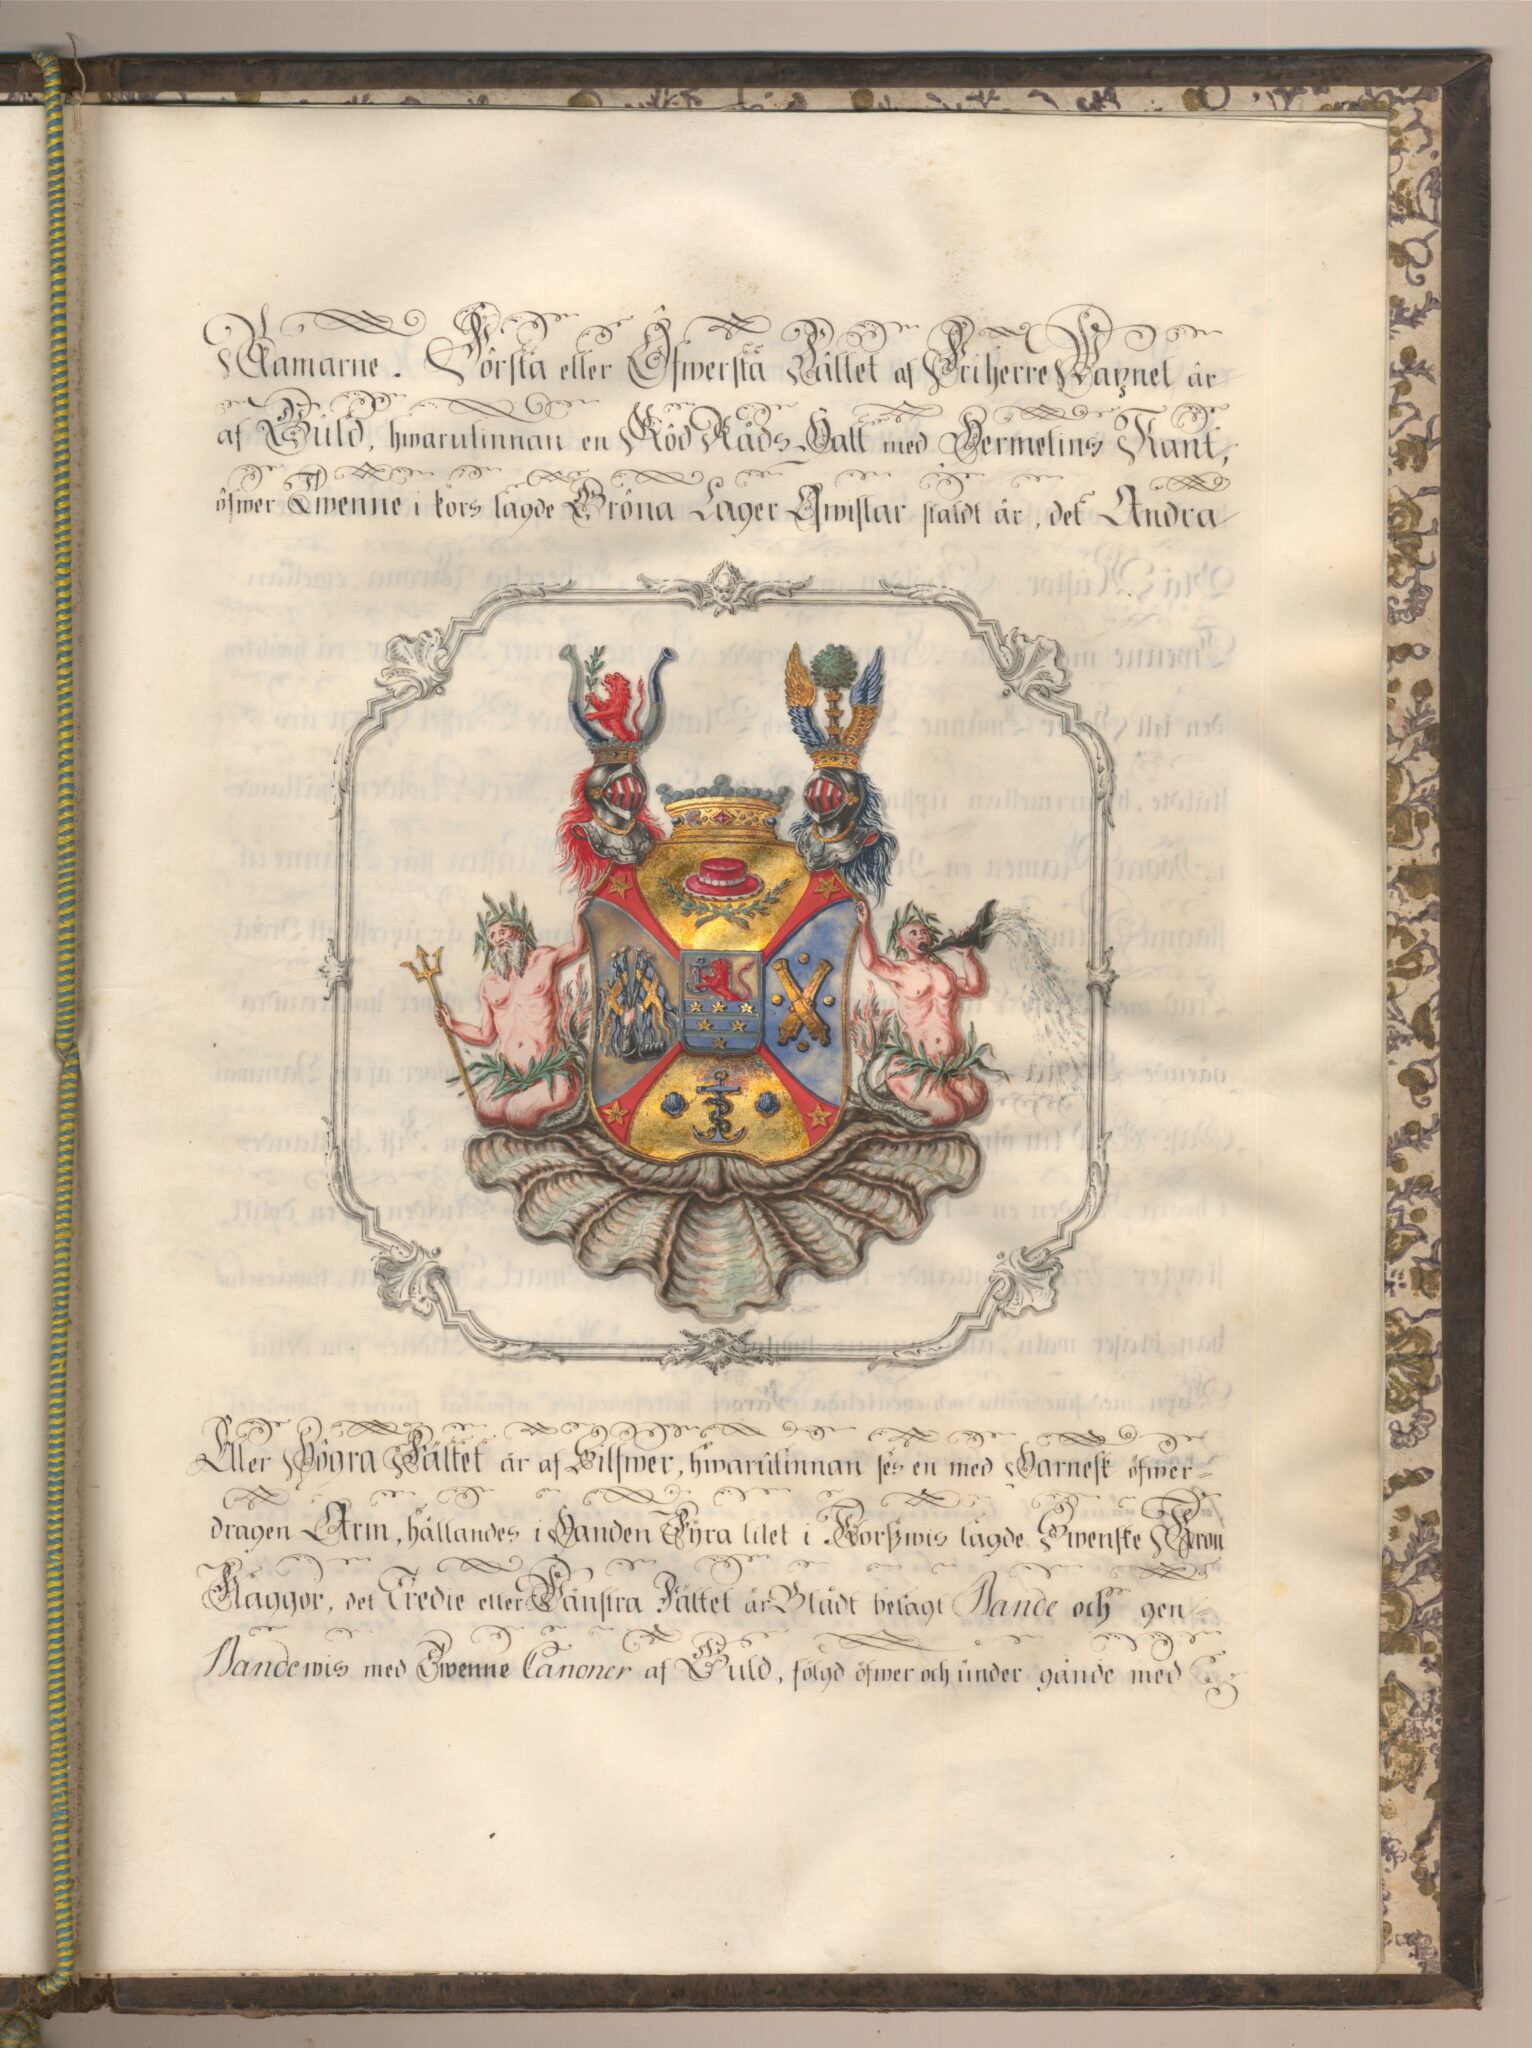 Ramarne. Första eller Öfwersta Fältet af Friherre Wapnet är
af Guld, hwarutinnan en Röd Råds Hatt med Hermelins Kant,
öfwer Twenne i kors lagde Gröna Lager Qwistar stäldt är, det Andra
Eller Högra Fältet är af Silfwer, hwarutinnan ses en med Harnesk öfwer=
dragen Arm, hållandes i Handen Fyra litet i Korßwis lagde Swenske Kron
Flaggor, det Tredie eller Wänstra Fältet är Blådt belagt Bande och gen=
Bandewis med Twenne Canoner af Guld, fölgd öfwer och under gånde med